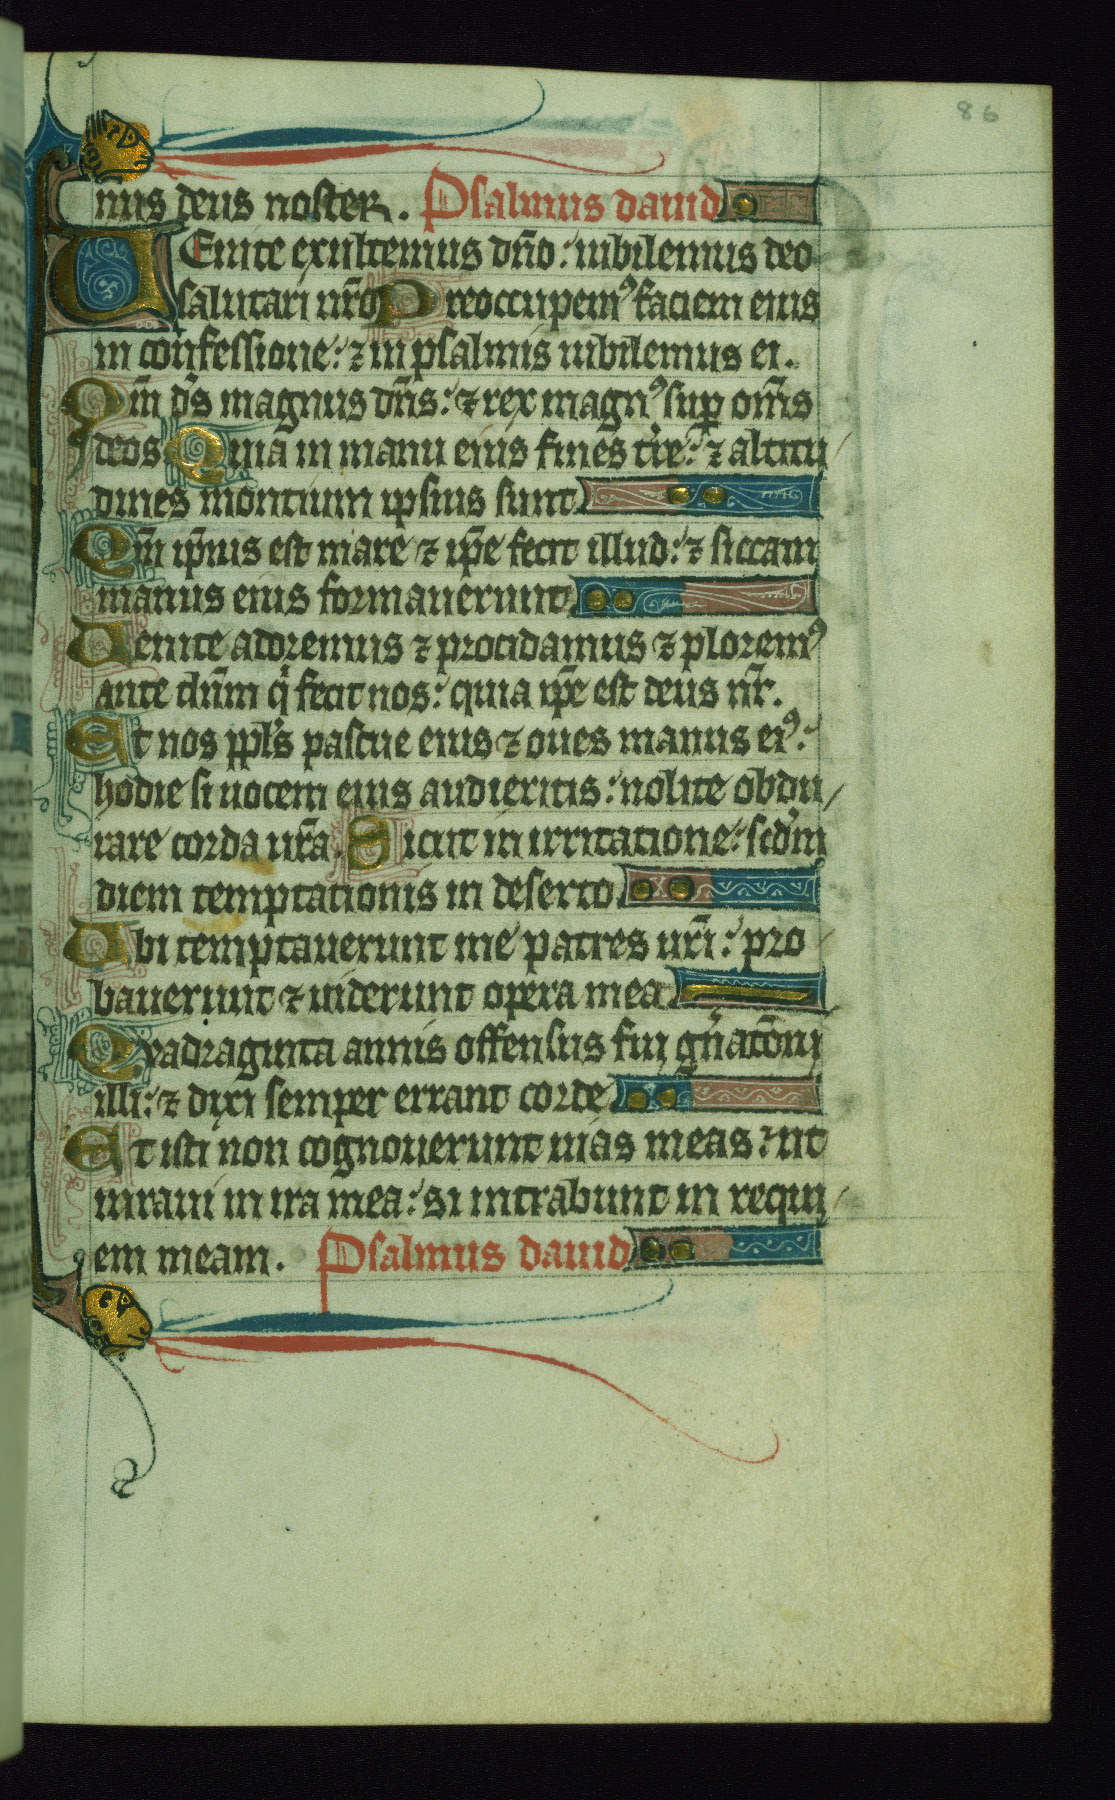 86
nus deus noster. Psalmus dauid
Uenite exultemus dn̄o: iubilemus deo
salutari nr̄o Preoccupemꝰ faciem eius
in confessione: ⁊ in psalmis iubilemus ei.
Qm̄ ds̄ magnus dn̄s: ⁊ rex magnꝰ sup om̄s
deos Quia in manu eius fines tr̄e: ⁊ altitu
dines montium ipsius sunt
Qm̄ ip̄ius est mare ⁊ ip̄e fecit illud: ⁊ siccam
manus eius formauerunt
Uenite adoremus ⁊ procidamus ⁊ ploremꝰ
ante dn̄m qͥ fecit nos: quia ip̄e est deus nr̄.
Et nos ppl̄s pascue eius ⁊ oues manus eiꝰ:
hodie si uocem eius audieritis: nolite obdu
rare corda ur̄a. Sicut in irritatione: scd̄m
diem temptationis in deserto
Ubi temptauerunt me patres ur̄i: pro
bauerunt ⁊ uiderunt opera mea
Quadraginta annis offensus fui gn̄atōni
illi: ⁊ dixi semper errant corde
Et isti non cognouerunt uias meas: ut
iuraui in ira mea: si intrabunt in requi
em meam. Psalmus dauid